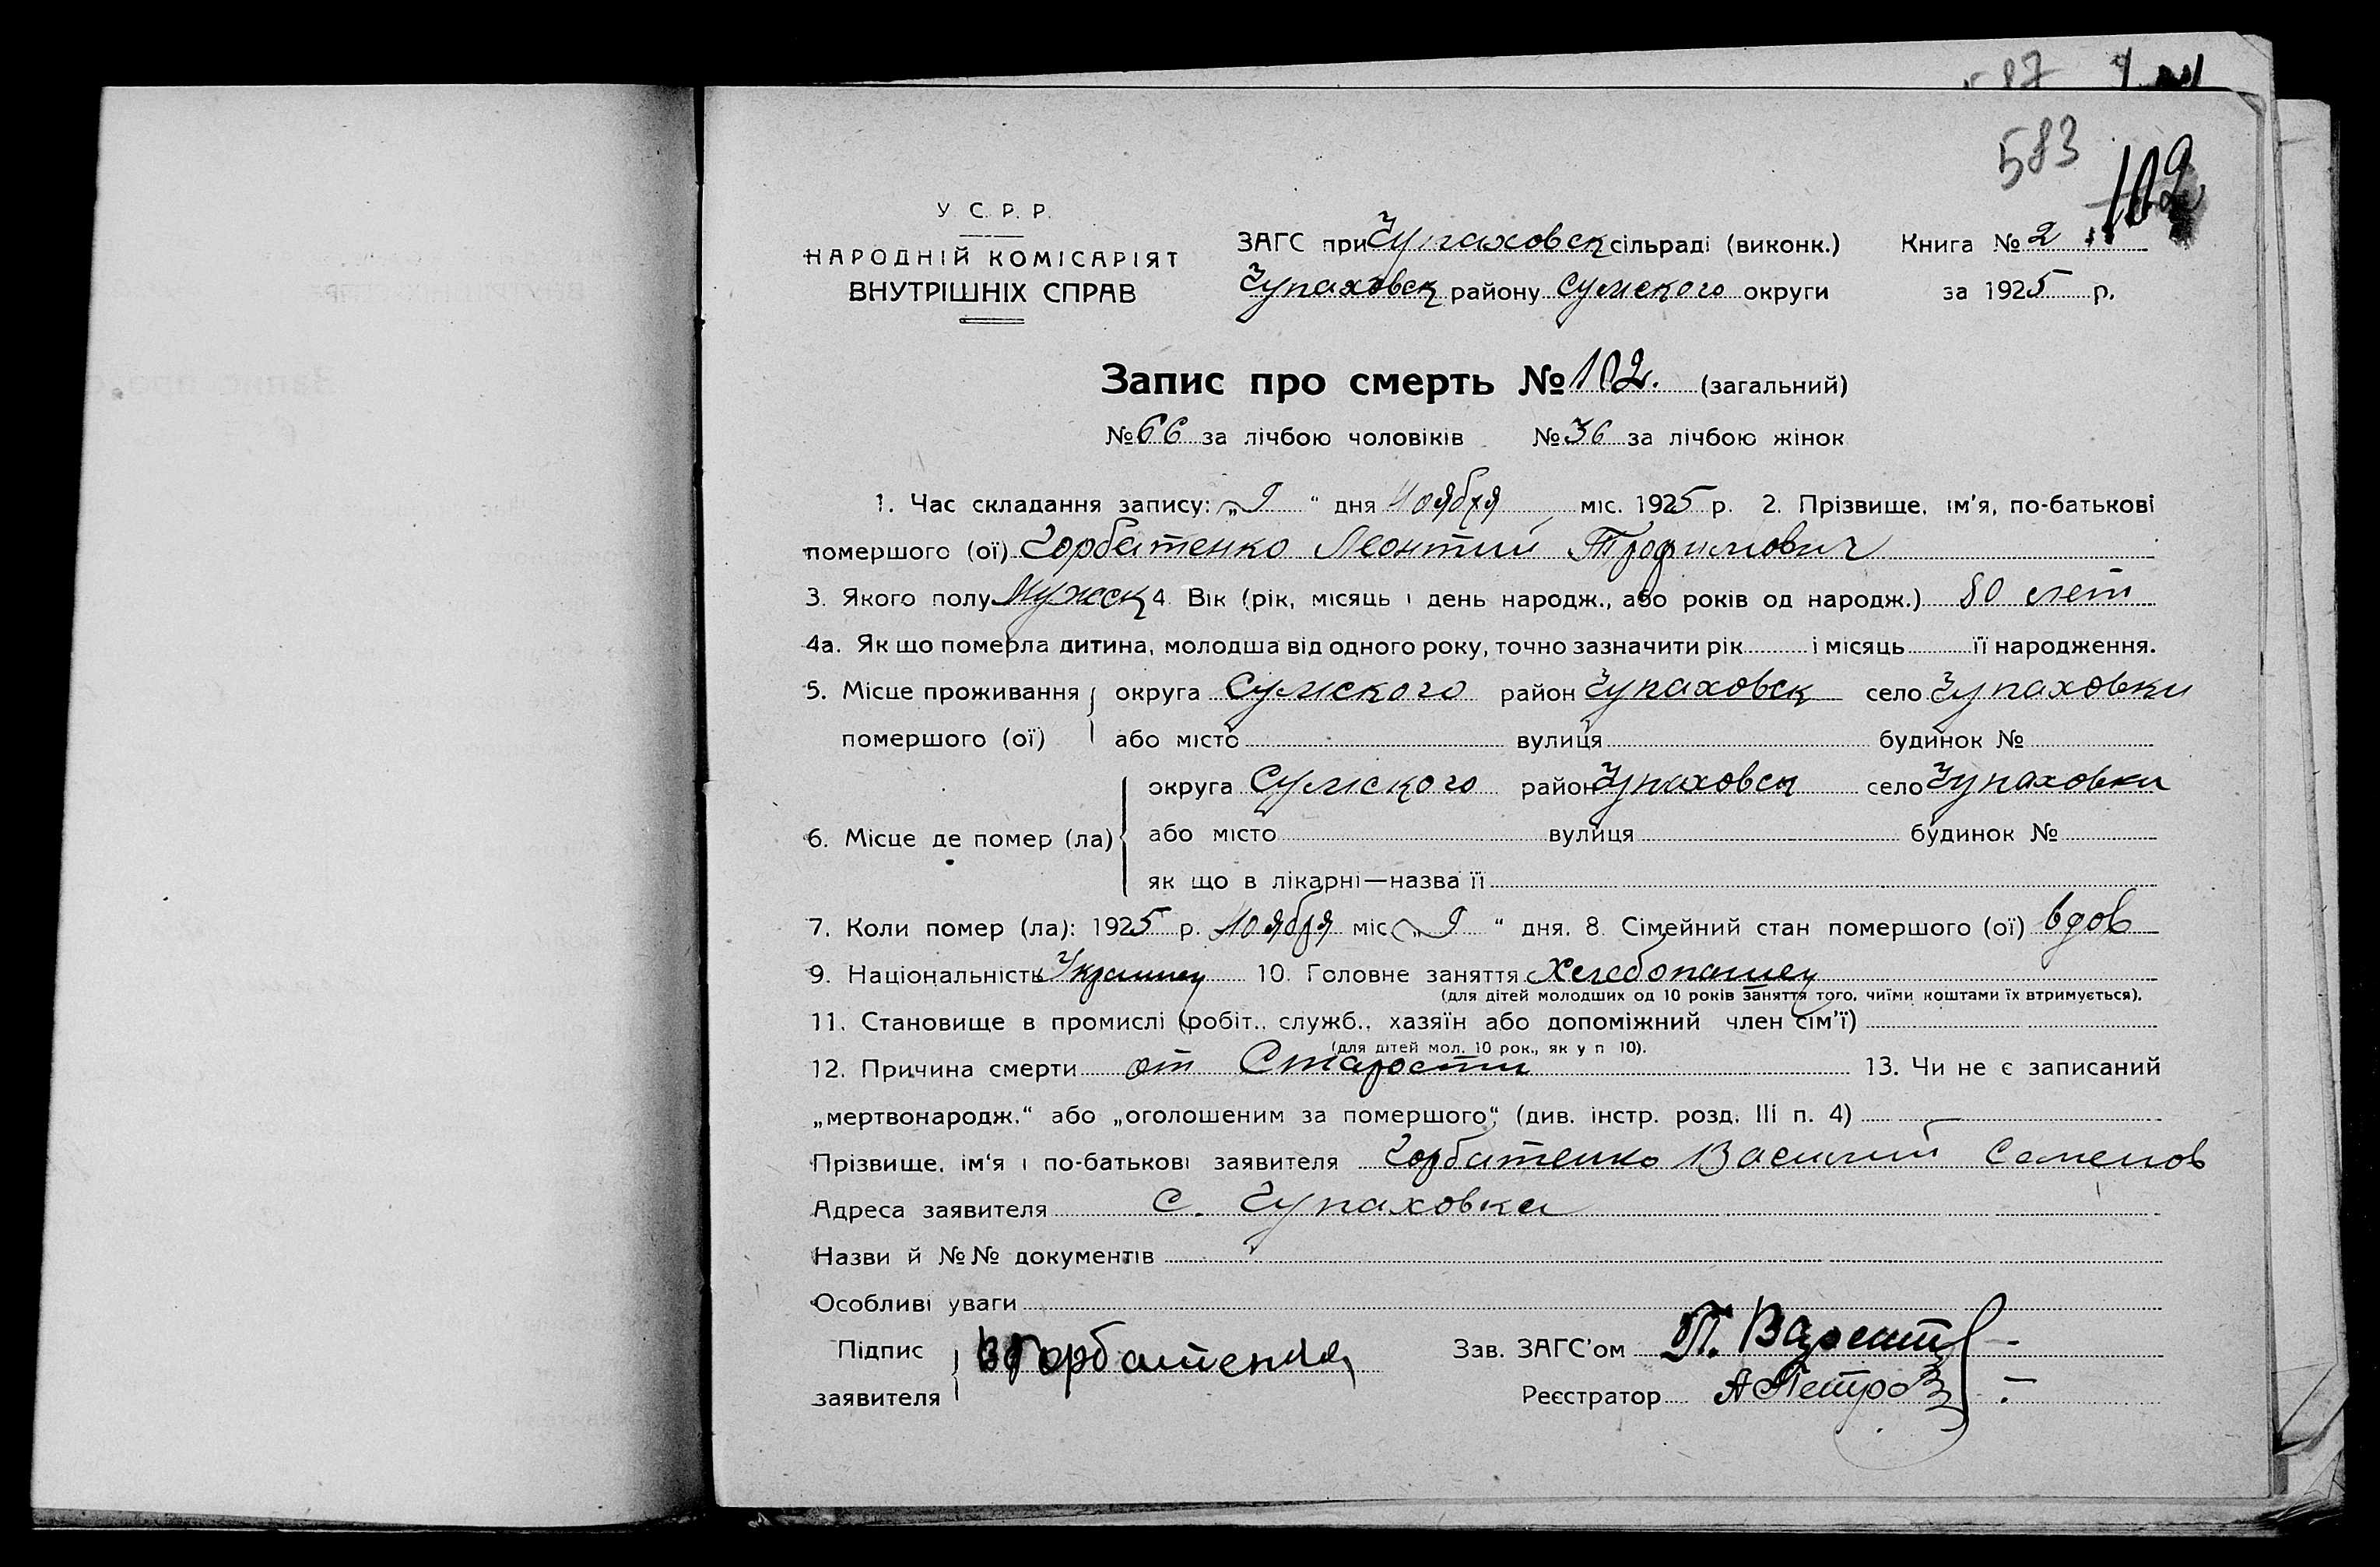 587
583
102
У. С. Р. Р.
НАРОДНІЙ КОМІСАРІЯТ
ВНУТРІШНІХ СПРАВ
ЗАГС при Чупаховск сільраді (виконк.) Книга № 2
Чупаховск району Сумского округи за 1925 р.
Запис про смерть № 102. (загальний)
№ 66 за лічбою чоловіків № 36 за лічбою жінок
1. Час складання запису: „9“ дня ноября міс. 1925 р. 2. Прізвище, ім'я, по-батькові
помершого (ої) Горбатенко Леонтий Трофимович
3. Якого полу Мужск 4. Вік (рік, місяць і день народж., або років од народж.) 80 лет
4а. Як що померла дитина, молодша від одного року, точно зазначити рік і місяць її народження.
5. Місце проживання округа Сумского район Чупаховск село Чупаховки
помершого (ої) або місто вулиця будинок №
округа Сумского район Чупаховск село Чупаховки
6. Місце де помер (ла) або місто вулиця будинок №
як що в лікарні—назва її
7. Коли помер (ла): 1925 р. ноября міс. „9“ дня. 8. Сімейний стан помершого (ої) вдов
9. Національність Украинец 10. Головне заняття Хлебопашец
(для дітей молодших од 10 років заняття того, чиїми коштами їх втримується).
11. Становище в промислі (робіт., служб., хазяїн або допоміжний член сім'ї)
(для дітей мол. 10 рок., як у п 10).
12. Причина смерти от Старости 13. Чи не є записаний
„мертвонародж.“ або „оголошеним за помершого“ (див. інстр. розд. III п. 4) —
Прізвище, ім'я і по-батькові заявителя Горбатенко Василий Семенов
Адреса заявителя с. Чупаховка
Назви й №№ документів
Особливі уваги
Підпис заявителя В Горбатенко
Зав. ЗАГС'ом П.
Реєстратор А Петров